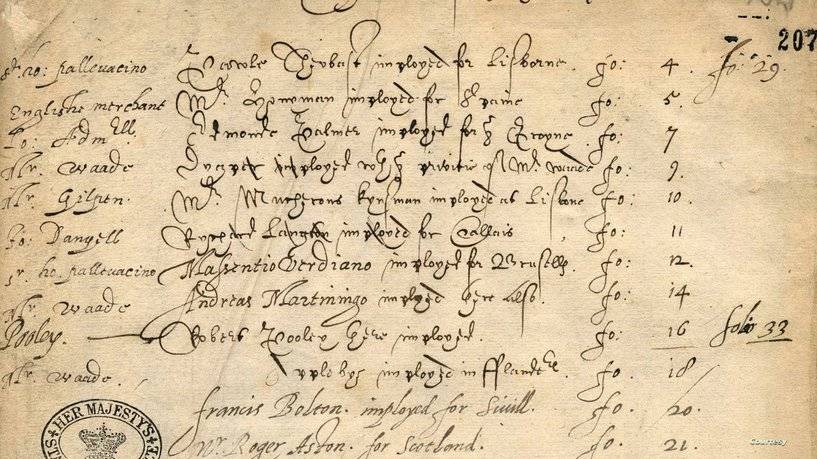 207
Sr. ho: pallevacino Pawle Theobast imployed for Lisborne. fo: 4. fo: 29.
Englishe merchant Mr. Howman imployed for Spaine fo: 5.
Lo: Admll. Edmonde Palmer imployed for ye Groyne. fo: 7
Mr. Waade imployed privitie of Mr. Waade fo: 9.
Mr. Gilpen. Mr. kynsman imployed at Lisbone fo: 10.
Jo: Daniell Rycherd Langton imployed for Callais fo: 11
Sr. ho. pallevacino Massentio Verdiano imployed for Brusells. fo: 12.
Mr. Waade Andreas Martiningo imployed here also. fo: 14
Pooley. Robert Pooley here imployed. fo: 16 folio 33
Mr. Waade. imployed in fflanders. fo: 18
francis Bolton. imployed for Sivill. fo. 20.
Mr. Roger Aston. for Scotland. fo: 21.
HER MAJESTYS
Courtesy